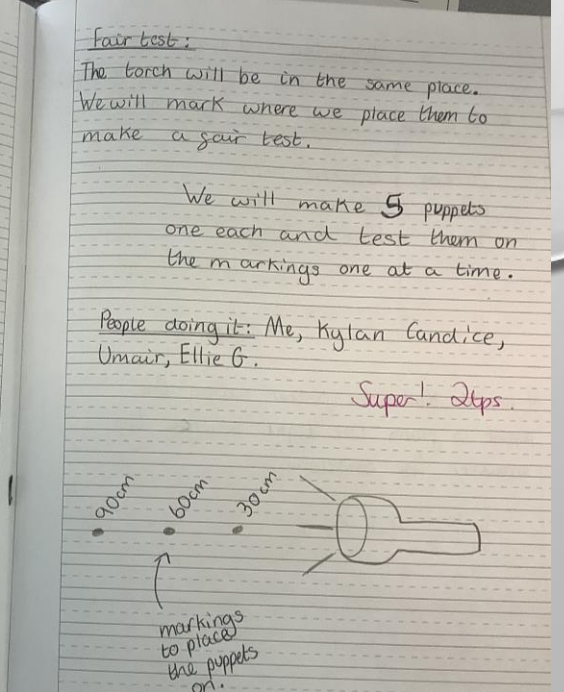 Fair test:
The torch will be in the same place.
We will mark where we place them to
make a fair test.
We will make 5 puppets
one each and test them on
the markings one at a time.
People doing it: Me, Kylan Candice,
Umair, Ellie G.
Super! 2tps.
90cm 60cm 30cm
markings
to place
the puppets
on.